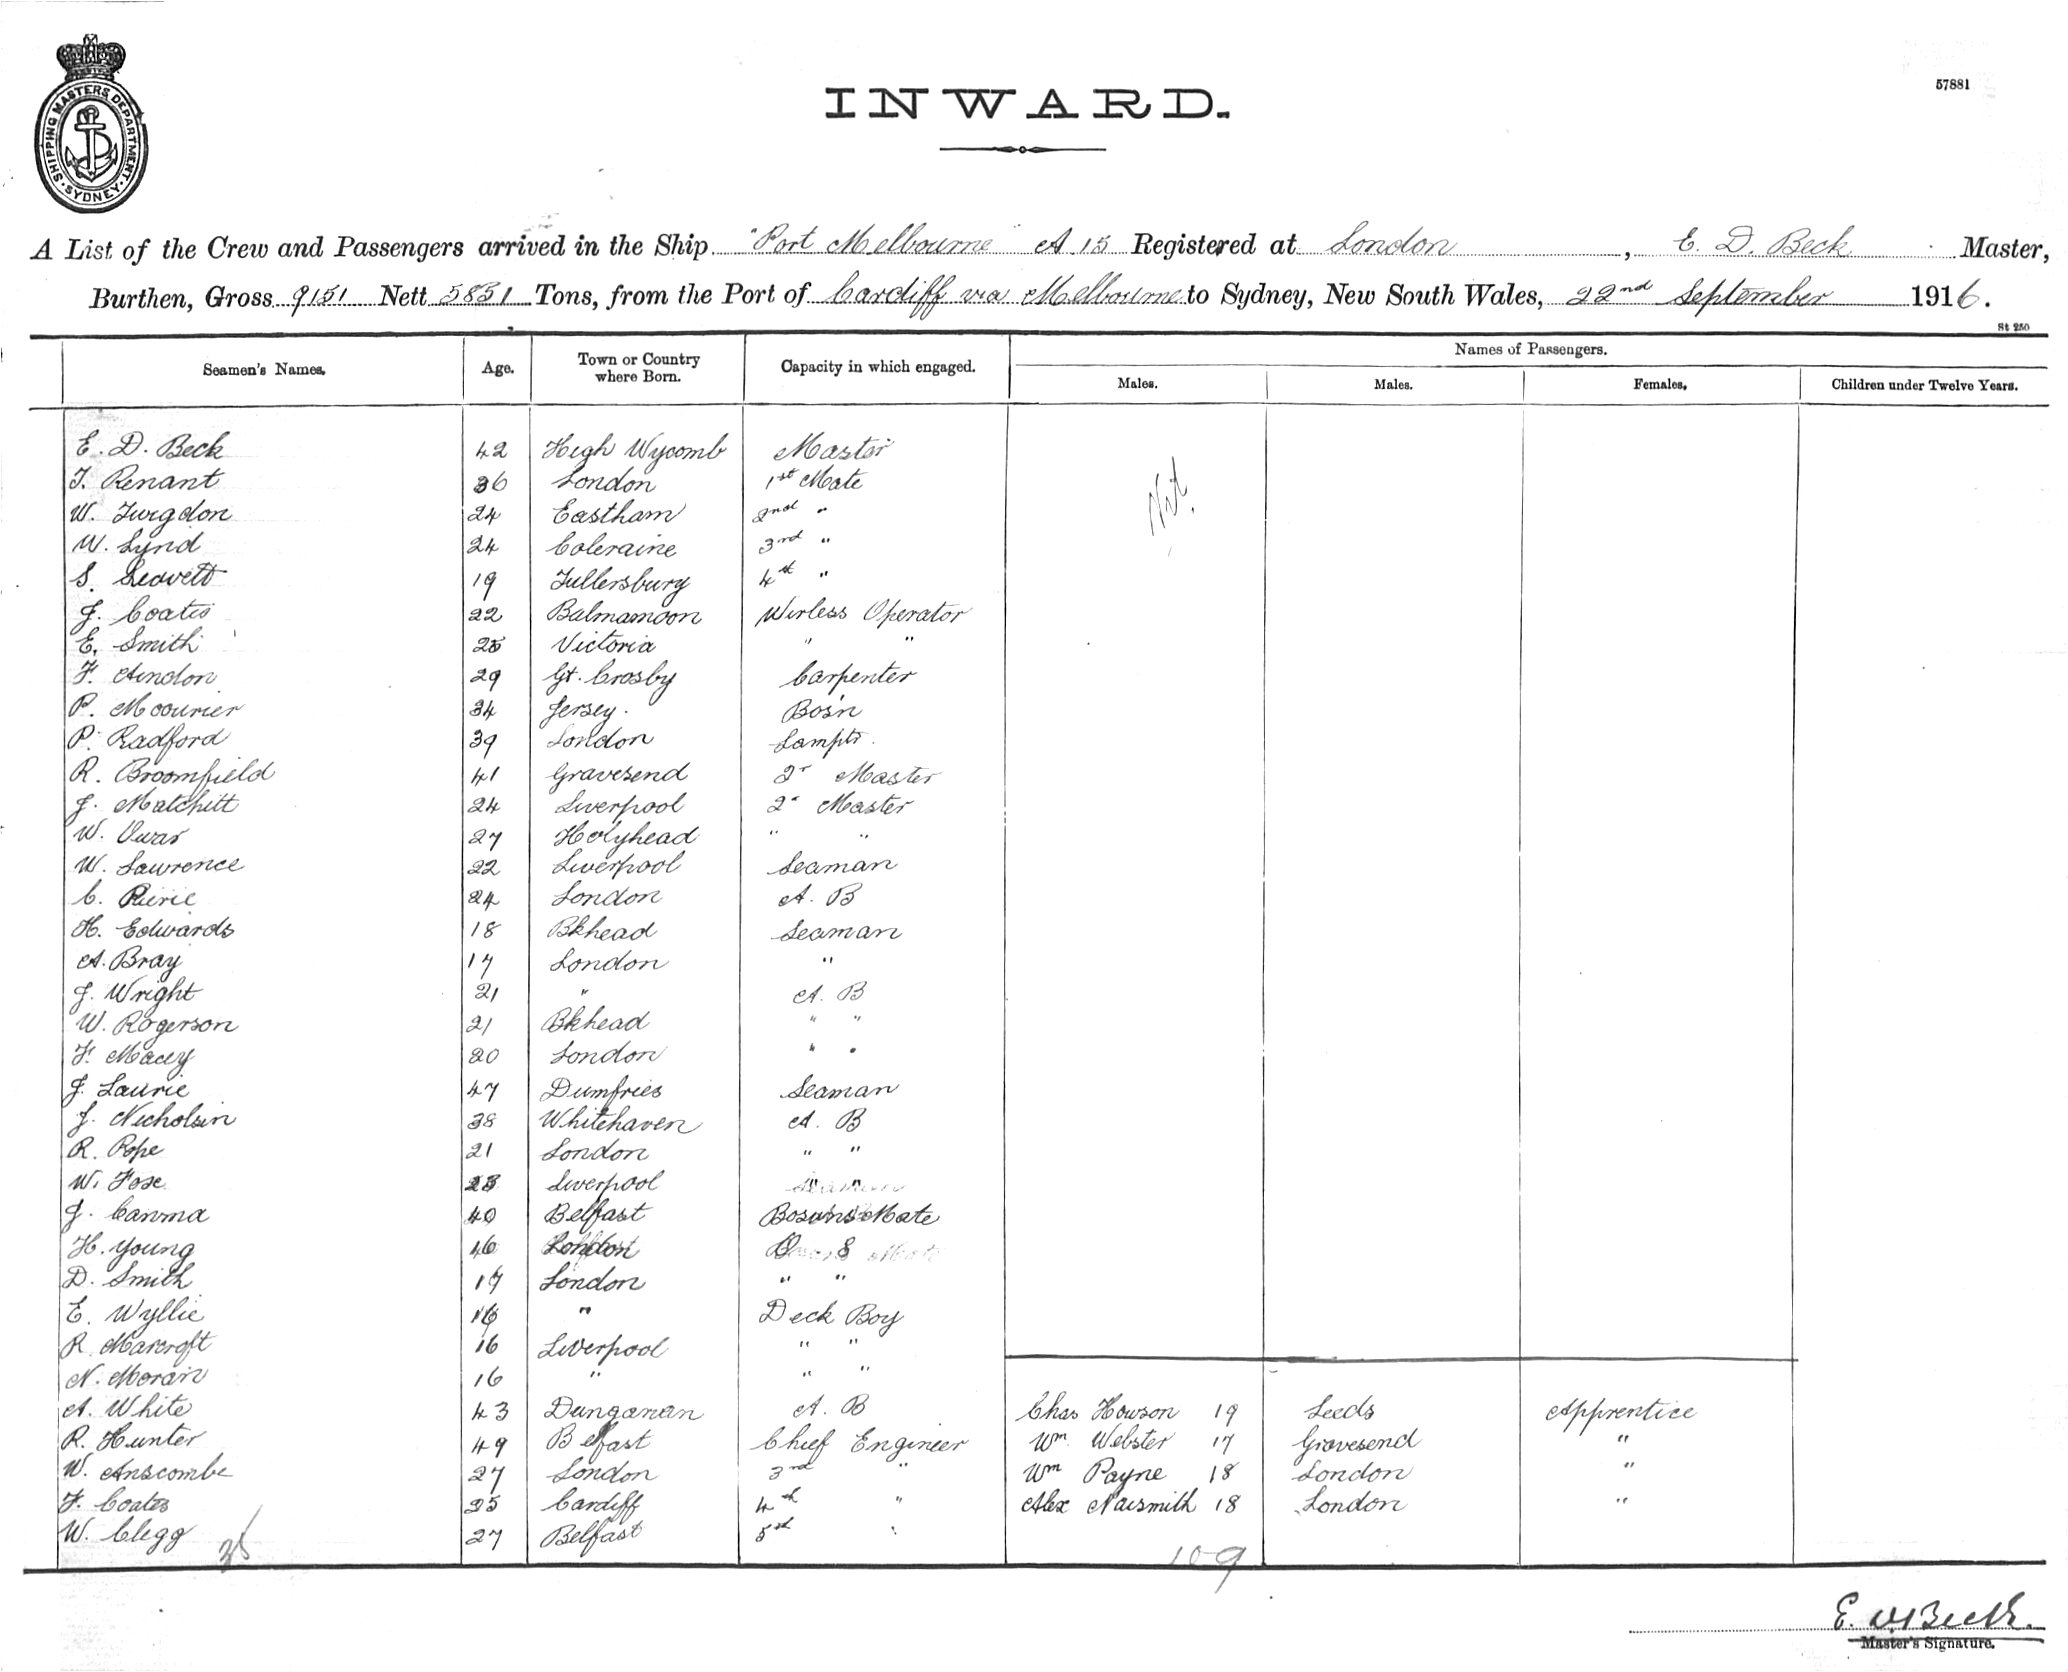 SHIPPING MASTERS DEPARTMENT. SYDNEY
57881
INWARD.
A List of the Crew and Passengers arrived in the Ship "Port Melbourne" A 15 Registered at London, E. D. Beck Master,
Burthen, Gross 9151 Nett 5831 Tons, from the Port of Cardiff via Melbourne to Sydney, New South Wales, 22nd September 1916.
St 250
Seamen's Names. Age. Town or Country where Born. Capacity in which engaged. Names of Passengers.
Males. Males. Females. Children under Twelve Years.
E. D. Beck 42 High Wycomb Master
T. Renant 36 London 1st Mate
Nil.
W. Turgdon 24 Eastham 2nd "
W. Lynd 24 Coleraine 3rd "
S. Leavett 19 Tullersbury 4th "
J. Coates 22 Balmamoon Wirless Operator
E. Smith 25 Victoria " "
F. Aindon 29 Gt. Crosby Carpenter
P. Moourier 34 Jersey. Bos'n
P. Radford 39 London Lamptr.
R. Broomfield 41 Gravesend 2r Master
J. Matchitt 24 Liverpool 2r Master
W. 27 Holyhead " "
W. Lawrence 22 Liverpool Seaman
C. Pirie 24 London A. B
H. Edwards 18 Bkhead Seaman
A. Bray 17 London "
J. Wright 21 " A. B
W. Rogerson 21 Bkhead " "
F. Macey 20 London " "
J. Laurie 47 Dumfries Seaman
J. Nicholsin 38 Whitehaven A. B
R. Pope 21 London " "
W. Fose 23 Liverpool " "
J. Canma 40 Belfast Bosuns Mate
H. Young 16 London O S
D. Smith 17 London " "
E. Wyllie 16 " Deck Boy
R. Marcroft 16 Liverpool " "
N. Moran 16 " " "
A. White 43 Dunganan A. B Chas Howson 19 Leeds Apprentice
R. Hunter 49 Belfast Chief Engineer Wm. Webster 17 Gravesend "
W. Anscombe 27 London 3rd " Wm Payne 18 London "
F. Coates 25 Cardiff 4th " Alex Naismith 18 London "
W. Clegg 27 Belfast 5th "
35 109
E. D. Beck.
Master's Signature.